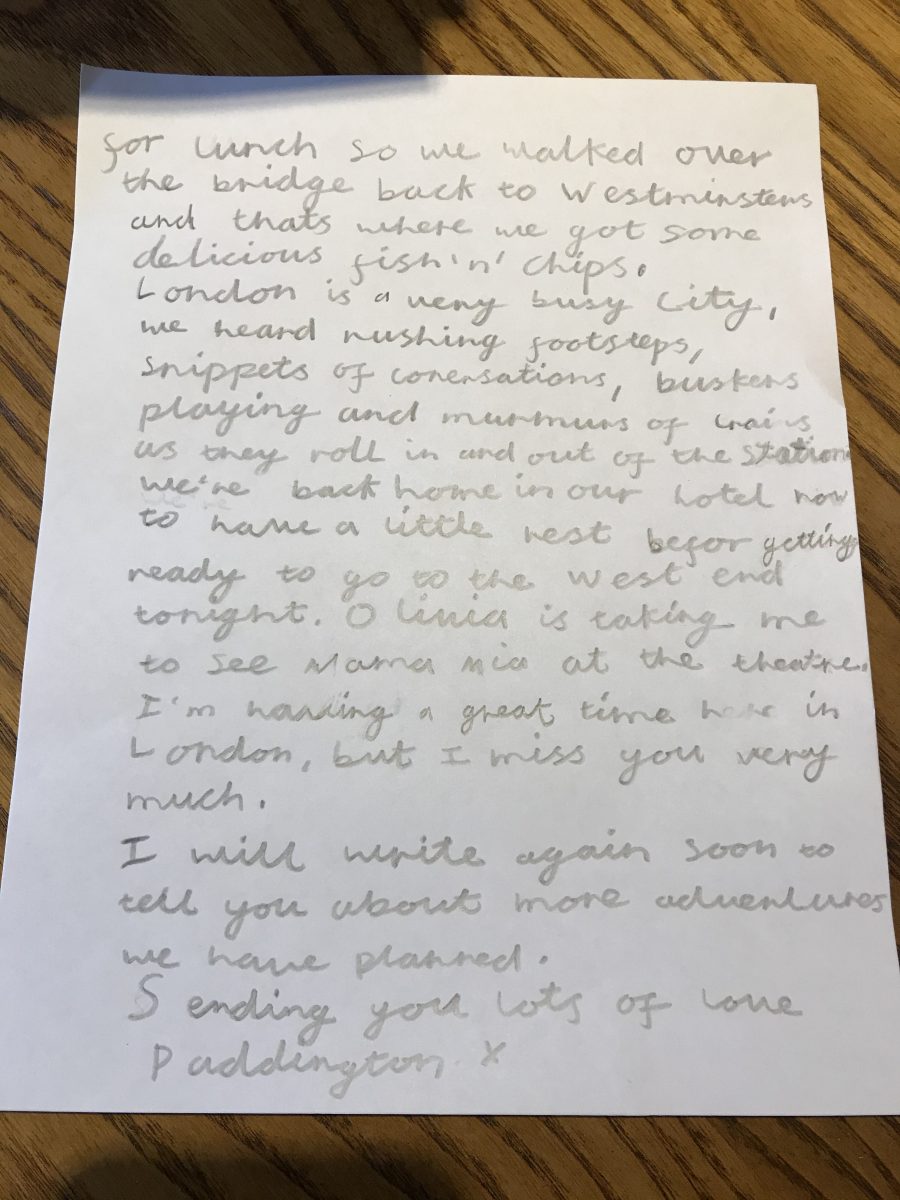 for lunch so we walked over
the bridge back to Westminsters
and thats where we got some
delicious fish'n' chips.
London is a very busy city,
we heard rushing footsteps,
snippets of conersations, buskers
playing and murmurs of trains
as they roll in and out of the station
we're back home in our hotel now
to have a little rest befor getting
ready to go to the west end
tonight. Olivia is taking me
to see Mama Mia at the theatre.
I'm having a great time here in
London, but I miss you very
much.
I will write again soon to
tell you about more adventures
we have planned.
Sending you lots of love
Paddington x